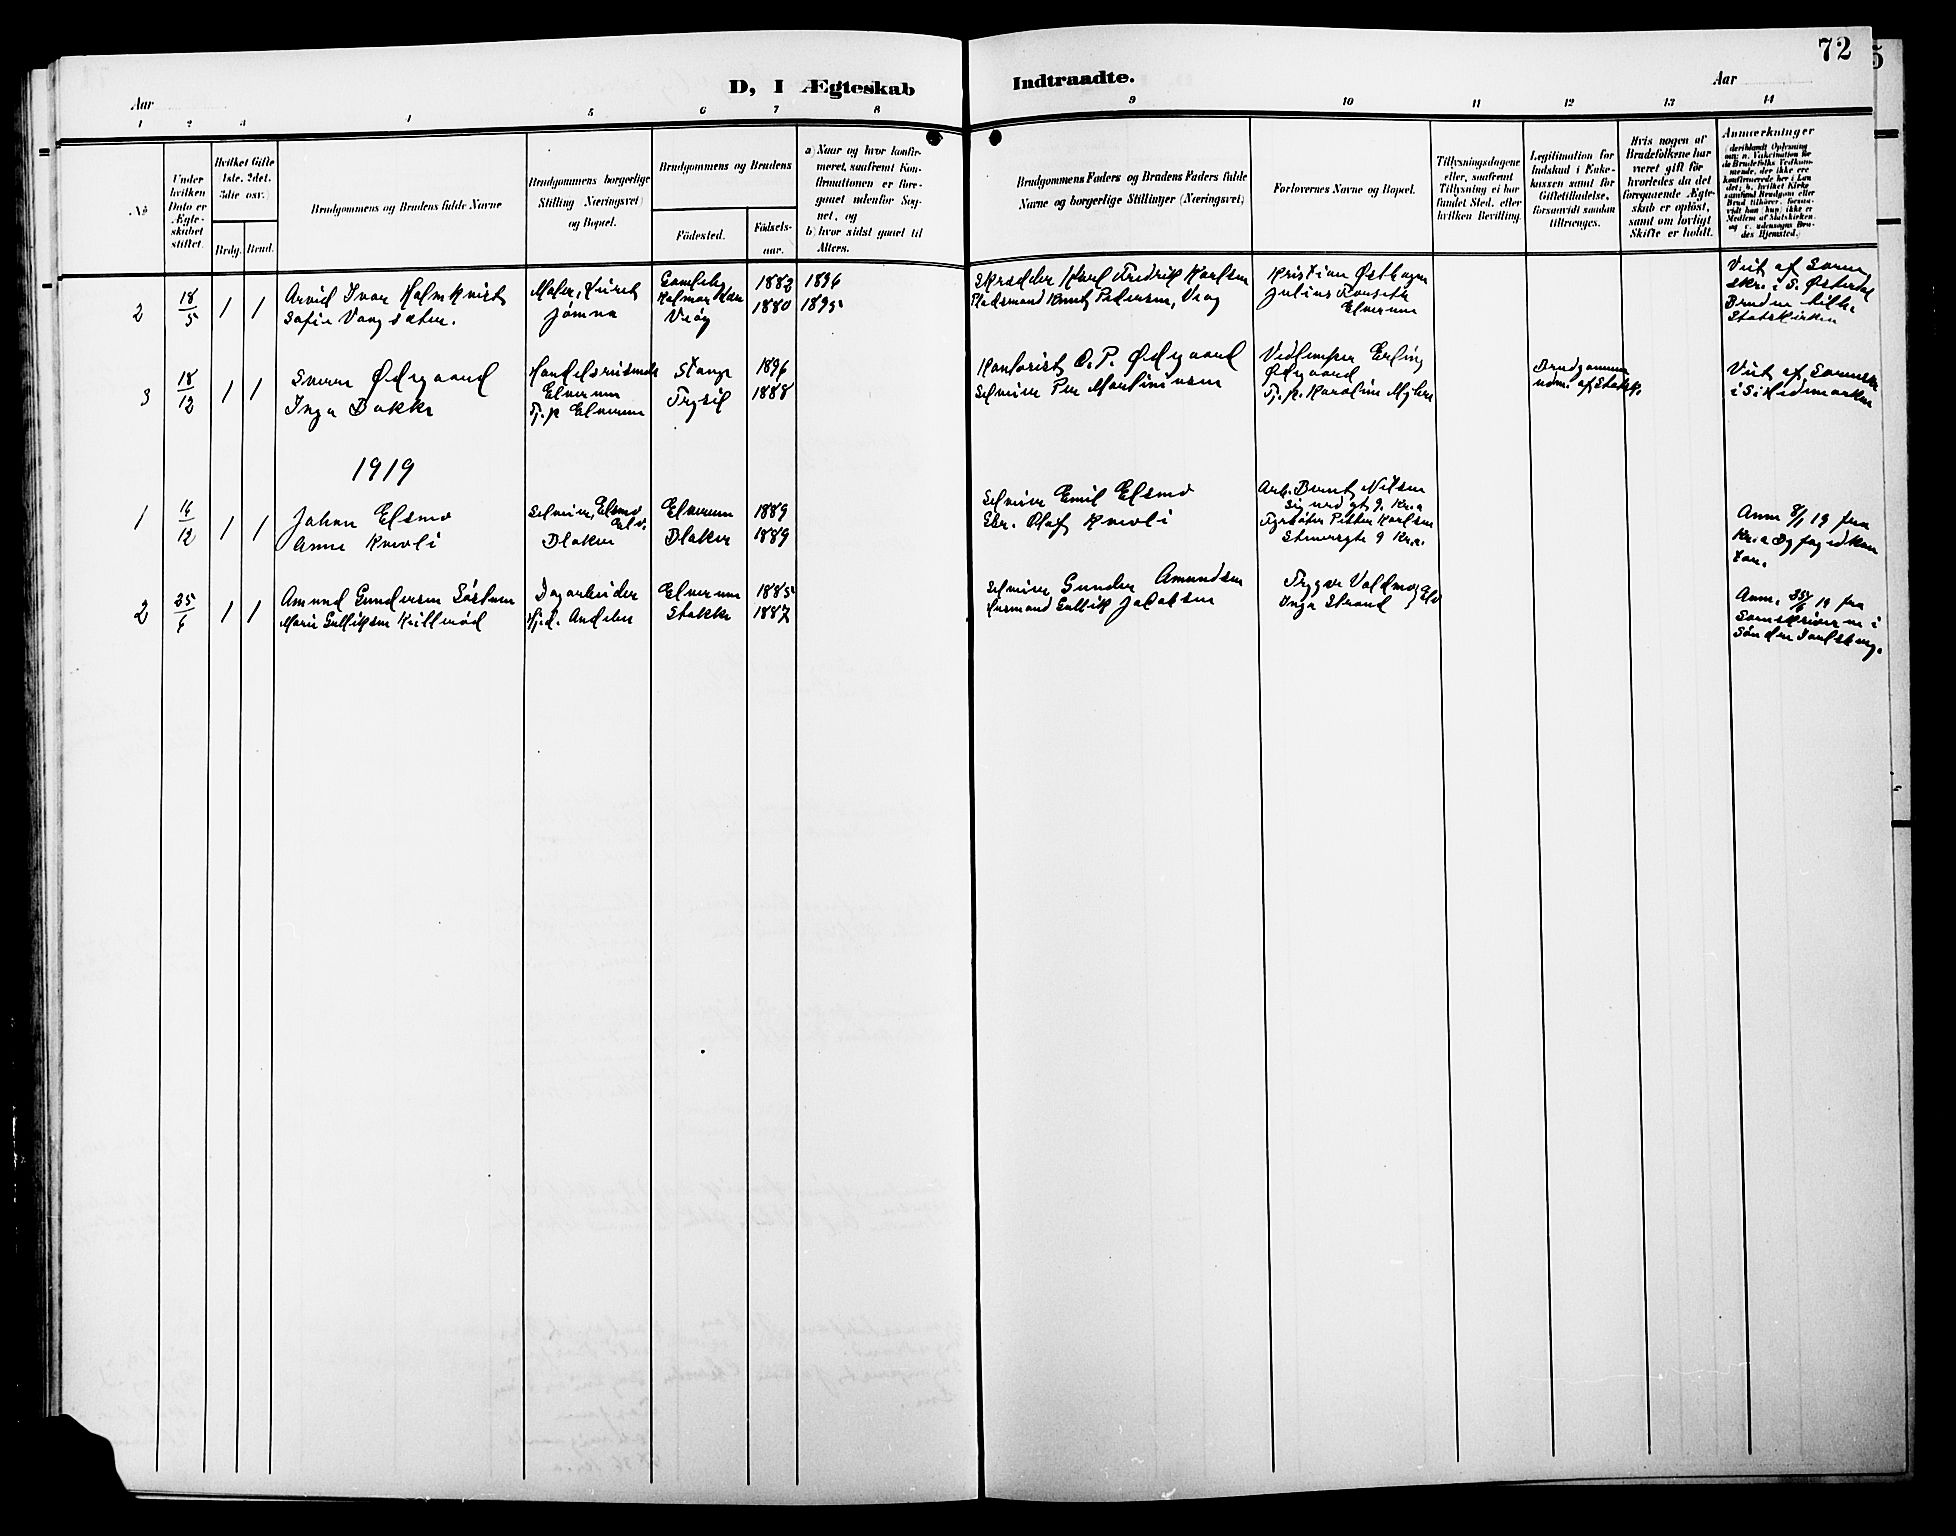 72
D, I Ægteskab Indtraadte.
Aar
Aar
1 2 3 4 5 6 7 8 9 10 11 12 13 14
No
Under hvilken Dato er Ægteskabet stiftet.
Hvilket Gifte 1ste, 2det, 3dte osv.)
Brdg. Brud.
Brudgommens og Brudens fulde Navne
Brudgommens borgerlige Stilling (Næringsvei) og Bopæl.
Brudgommens og Brudens
Fødested.
Fødselsaar.
a) Naar og hvor konfirmeret, saafremt Konfirmationen er foregaaet udenfor Sognet, og
b) hvor sidst gaaet til Alters.
Brudgommens Faders og Brudens Faders fulde Navne og borgerlige Stillinger (Næringsvei)
Forlovernes Navne og Bopæl.
Tillysningsdagene eller, saafremt Tillysning ei har fundet Sted, efter hvilken Bevilling.
Legitimation for Indskud i Enkekassen samt for Giftetilladelse, forsaavidt saadan tiltrænges.
Hvis nogen af Brudefolkene har været gift før hvorledes da det foregaaende Ægteskab er opløst, samt om lovligt Skifte er holdt.
Anmærkninger
2 18/5 1 1
Arvid Ivar Holmkvist
Sofie Vangsæter.
Maler, Kiret
Jømna
Gamleby
Kalmar Län
Vrøg
1882 1896
1880 1895
Skrædder Karl Fredrik Karlsen
Pladsmand Bernt Pedersen, Vrøg
Kristian Østhagen
Julius Ronseth
Elverum
Viet af Soren
skr. i S. Østerdal
Bruden tilh.
Statskirken
3 18/12 1 1
Sverre Ødegaard
Inga Bakke
Elverum
Tj. p Elverum
Stange
Trysil
1896
1888
Kontorist O. P. Ødegaard
Selveier Per Martinusen
Erling
Ødegaard
Tj. p. Karoline Myhre
Brudgommen
udm. af Statsk.
Viet af Sorensk.
i S. Hedemarken
1919
1 16/12 1 1
Johan Elsmo
Anne Kneoli
Selveier, Elsmo
Elv.
Blaker
Elverum
Blaker
1889
1889
Selveier Emil Elsmo
Gbr. Olaf Kneoli
Arb. Bernt Nilsen
Sigurdgt 9. Kr.a
Fyrbøter Petter Karlsen
9 Kr.a.
Anm 8/1 19 fra
Kr.a Byfogedkon
tor.
2 25/6 1 1
Amund Gundersen Sørtun
Marie Gulliksen
Dagarbeider
Hjd. Andebu
Elverum
Stokke
1885
1887
Selveier Gunder Amundsen
Gullik Jacobsen
Trygve Voldmo
Inga Strand } Elv
Anm. 19 fra
Sorenskriveren i
Søndre Jarlsberg.